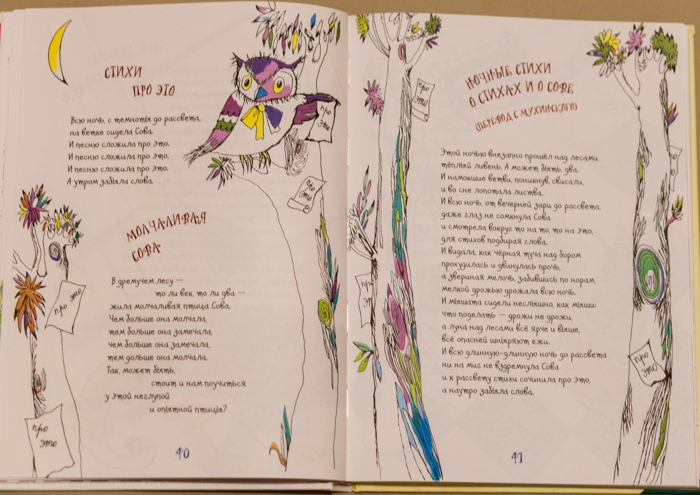 СТИХИ
ПРО ЭТО
Всю ночь, с темноты до рассвета,
на ветке сидела Сова.
И песню сложила про это.
И песню сложила про это.
И песню сложила про это.
А утром забыла слова.
МОЛЧАЛИВАЯ
СОВА
В дремучем лесу —
то ли век, то ли два —
жила молчаливая птица Сова.
Чем больше она молчала,
тем больше она замечала,
чем больше она замечала,
тем дольше она молчала.
Так, может быть,
стоит и нам поучиться
у этой неглупой
и опытной птицы?
40
про это
про это
про это
про это
НОЧНЫЕ СТИХИ
О СТИХАХ И О СОВЕ
(ПЕРЕВОД С МУХИНСКОГО)
Этой ночью внезапно прошёл над лесами
тёплый ливень. А может быть, два.
И намокшие ветви, поникнув, свисали,
и во сне лопотала листва.
И всю ночь, от вечерней зари до рассвета,
даже глаз не сомкнула Сова
и смотрела вокруг то на то, то на это,
для стихов подбирая слова.
И видала, как чёрная туча над бором
прохудилась и двинулась прочь,
а звериная мелочь, забившись по норам,
мелкой дрожью дрожала всю ночь.
И мышата сидели неслышно, как мыши:
что поделать — дрожи не дрожи,
а луна над лесами всё ярче и выше,
всё опасней шныряют ежи.
И всю длинную-длинную ночь до рассвета
ни на миг не вздремнула Сова
и к рассвету стихи сочинила про это,
а наутро забыла слова.
41
про это
про это
про это
про это